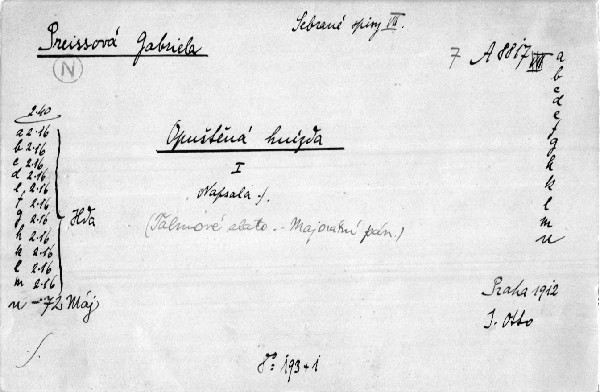 Sebrané spisy VII.
Preissová Gabriela
N
7 A 8817 VII
a
b
c
d
e
f
g
h
k
l
m
n
Opuštěná hnízda
I
Napsala ./.
(Talmiové zlato. - Majorátní pán.)
2.40
a 2.16
b 2.16
c 2.16
d 2.16
e 2.16
f 2.16
g 2.16
h 2.16
k 2.16
l 2.16
m 2.16
n - 72 Máj
Hďa
Praha 1912
J. Otto
8°: 193+1